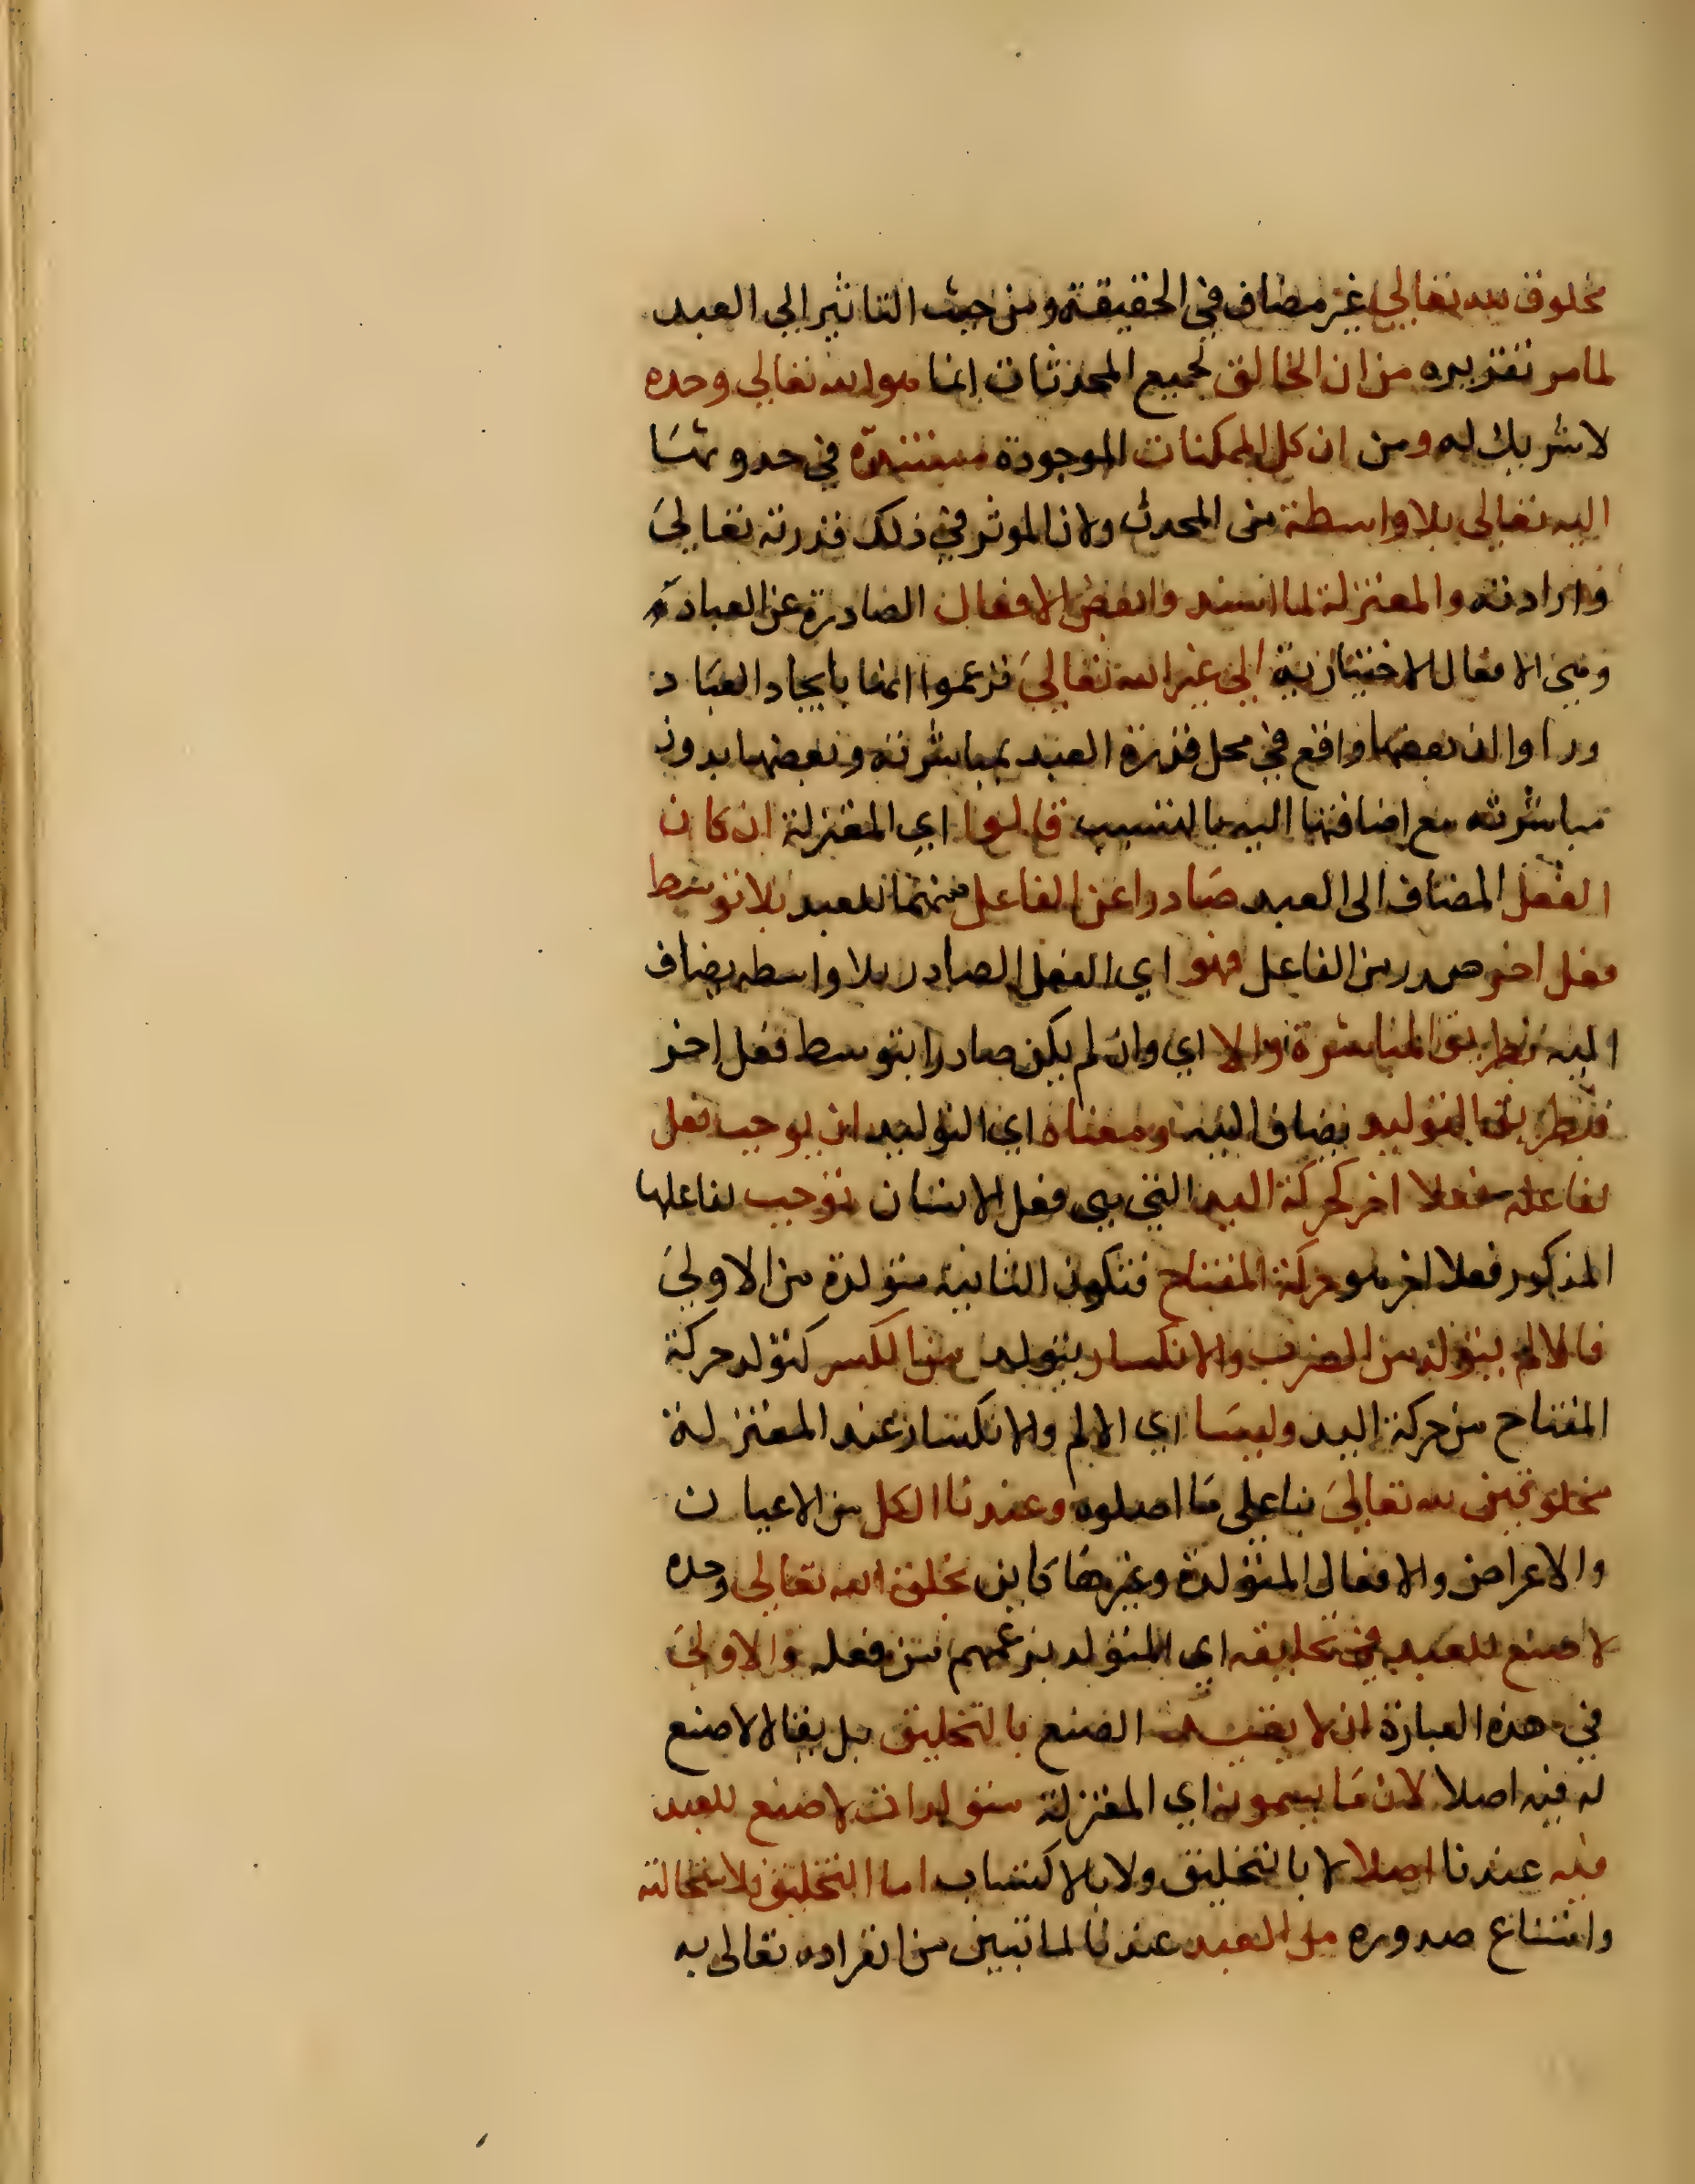 مخلوق لله تعالى غير مضاف في الحقيقة ومن حيث التاثير الى العبد
لما مر تقريره من ان الخالق لجميع المحدثات انما هو الله تعالى وحده
لا شريك له ومن ان كل الممكنات الموجودة مستندة في حدوثها
اليه تعالى بلا واسطة من المحدث ولان الموثر في ذلك قدرته تعالى
وارادته والمعتزلة لما اسندوا بعض الافعال الصادرة عن العباد
وهي الافعال الاختيارية الى غير الله تعالى فزعموا انها بايجاد العباد
وراوا ان بعضها واقع في محل قدرة العبد بمباشرته وبعضها بدون
مباشرته مع اضافتها اليه بالتسبب قالوا اي المعتزلة ان كان
الفعل المضاف الى العبد صادرا عن الفاعل للعبد بلا توسط
فعل اخر صدر من الفاعل فهو اي الفعل الصادر بلا واسطه يضاف
اليه بطريق المباشرة والا اي وان لم يكن صادرا بتوسط فعل اخر
فبطريق التوليد يضاف اليه ومعناه اي التوليد ان يوجب فعل
لفاعله فعلا اخر كحركة اليد التي هي فعل الانسان توجب لفاعلها
المذكور فعلا اخر هو حركة المفتاح فتكون الثانية متولدة من الاولى
فالالم يتولد من الضرب والانكسار يتولد من الكسر كتولد حركة
المفتاح من حركة اليد وليسا اي الالم والانكسار عند المعتزلة
مخلوقين لله تعالى بنا على ما اصلوه وعندنا الكل من الاعيان
والاعراض والافعال المتولدة وغيرها كاين بخلق الله تعالى وحده
لا صنع للعبد في تخليقه اي المتولد بزعمهم من فعله والاولى
في هذه العبارة ان لا يقيد الصنع بالتخليق بل يقال لا صنع
له فيه اصلا لان ما يسمونه اي المعتزلة متولدات لا صنع للعبد
فيه عندنا اصلا لا بالتخليق ولا بالاكتساب اما التخليق فلاستحالته
وامتناع صدوره من العبد عندنا لما تبين من انفراده تعالى به